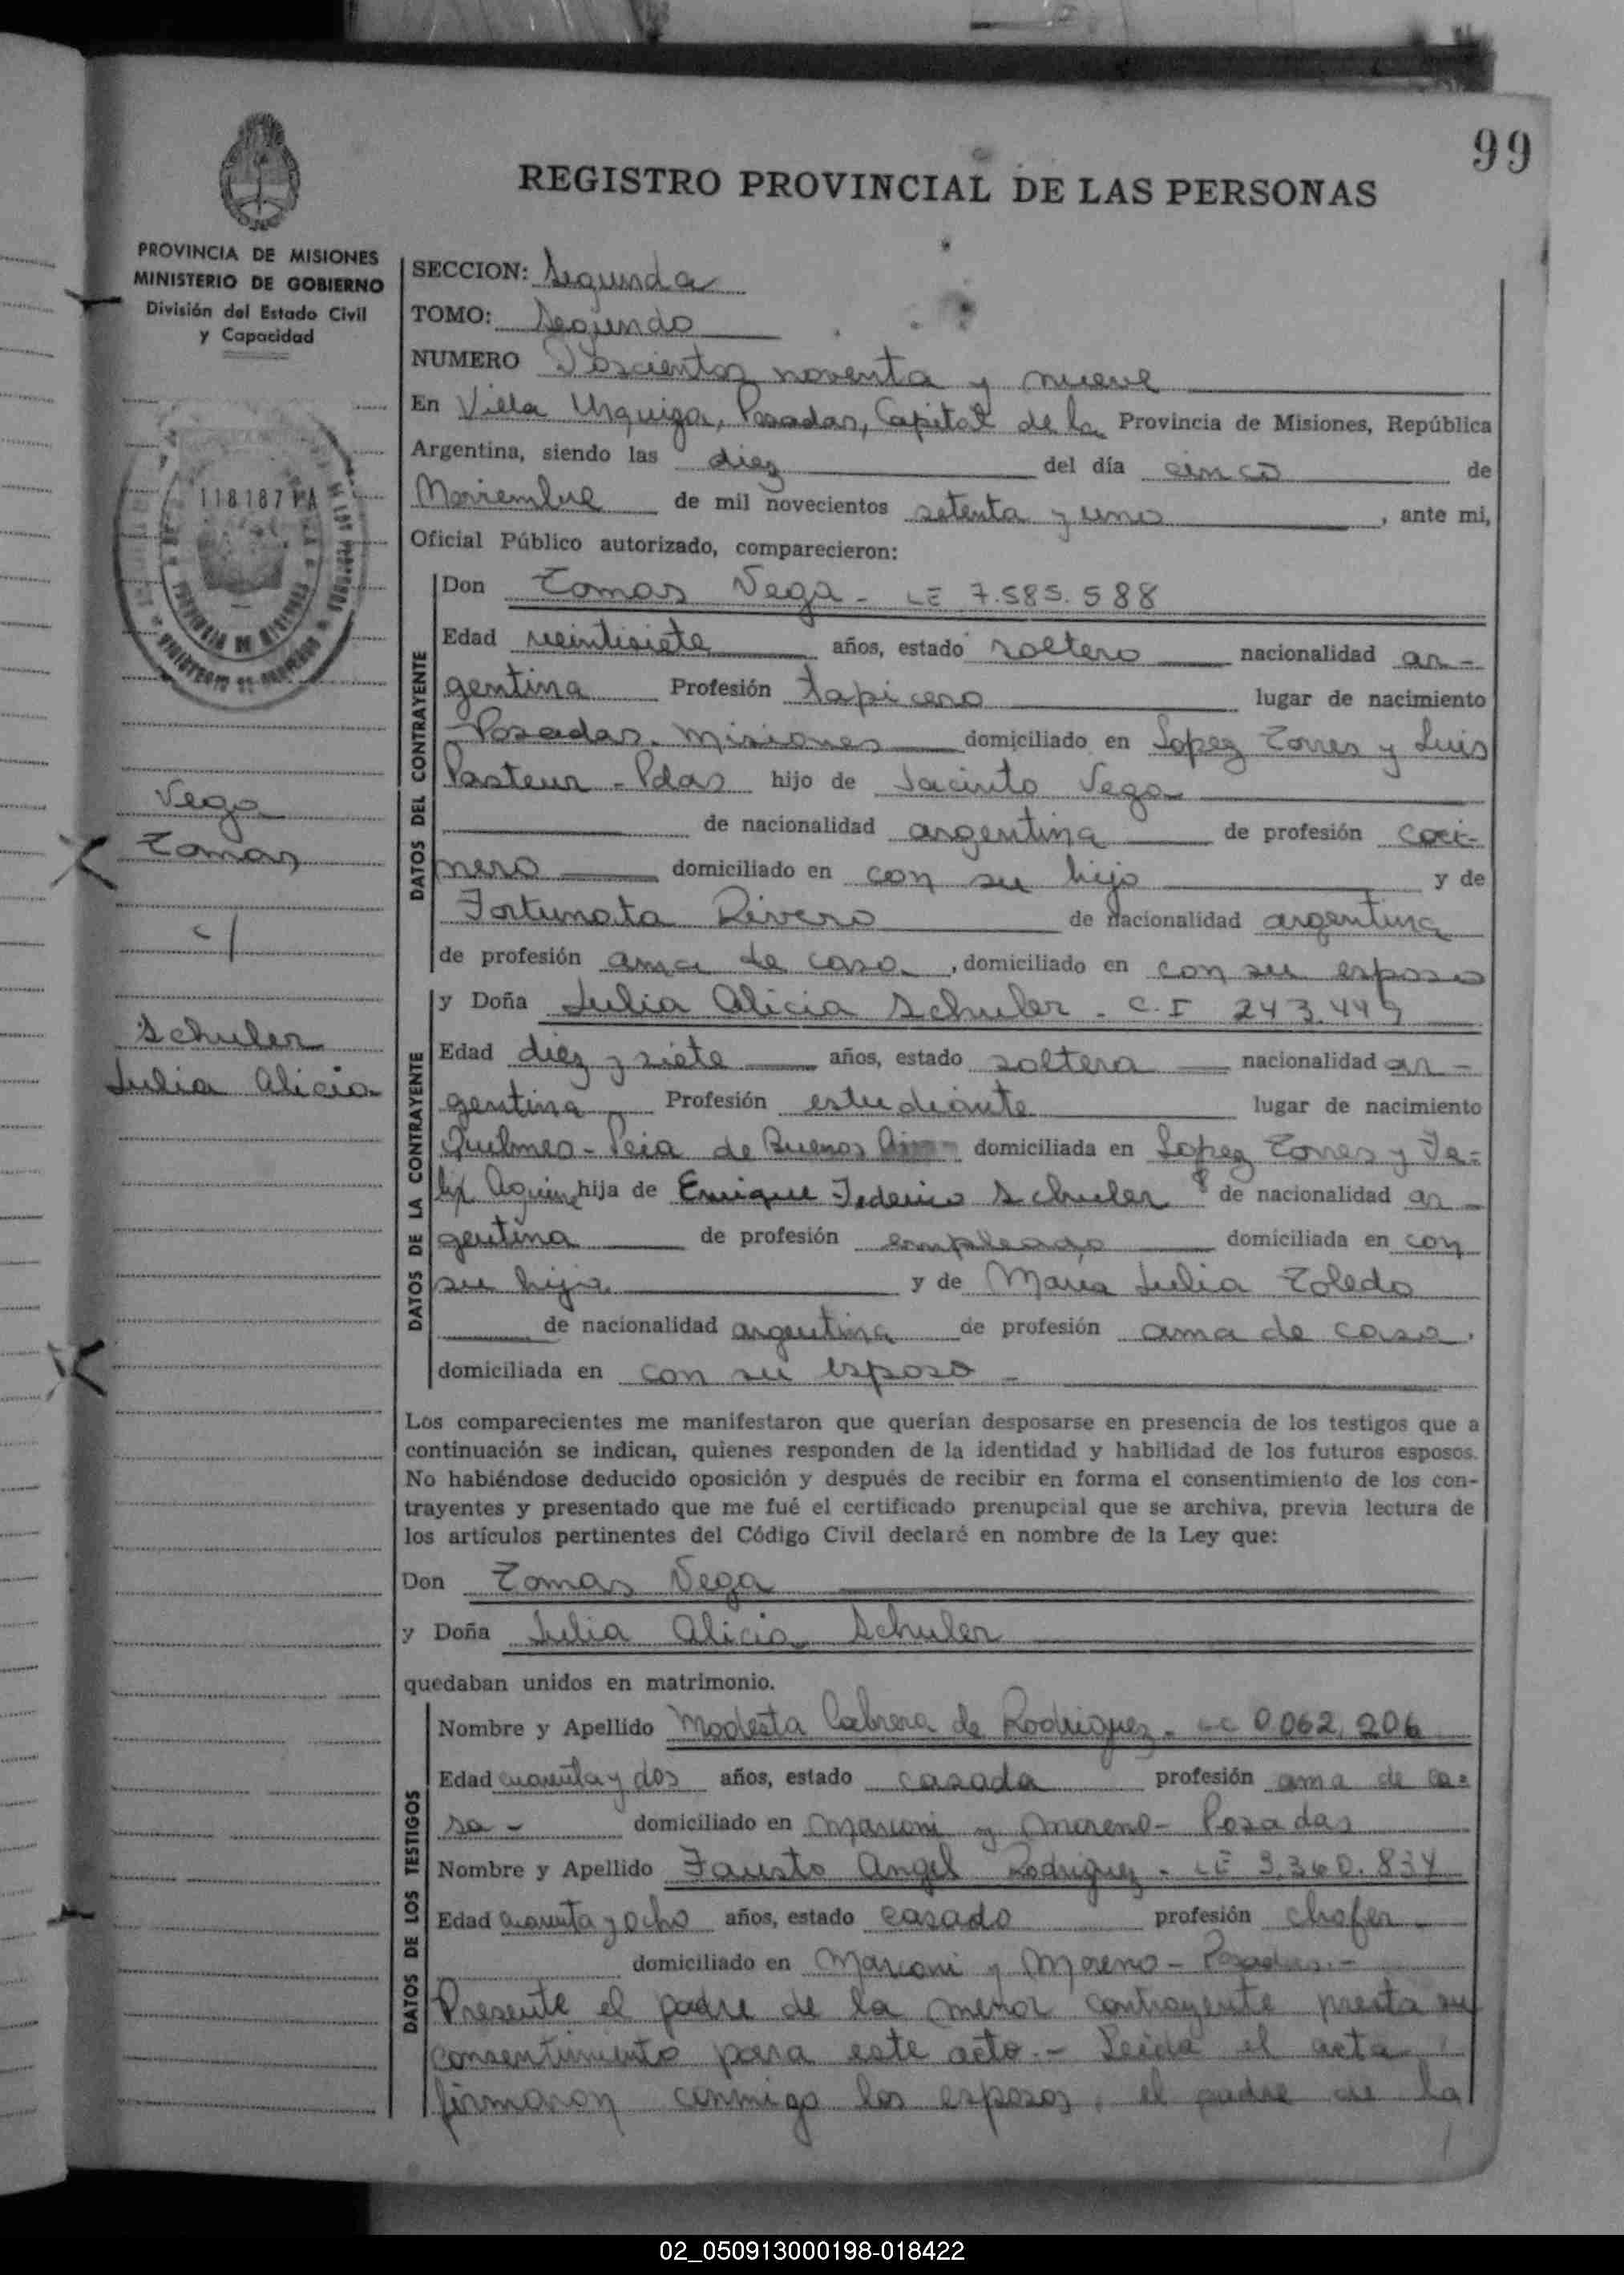 99
REGISTRO PROVINCIAL DE LAS PERSONAS
PROVINCIA DE MISIONES
MINISTERIO DE GOBIERNO
División del Estado Civil
y Capacidad
118187 PA
Vega
Tomas
c/
Schuler
Julia Alicia
SECCION: Segunda
TOMO: Segundo
NUMERO Doscientos noventa y nueve
En Villa Urquiza, Posadas, Capital de la Provincia de Misiones, República
Argentina, siendo las diez del día cinco de
Noviembre de mil novecientos setenta y uno, ante mi,
Oficial Público autorizado, comparecieron:
DATOS DEL CONTRAYENTE
Don Tomas Vega - LE 7.585.588
Edad veintisiete años, estado soltero nacionalidad ar-
gentina Profesión tapicero lugar de nacimiento
Posadas. Misiones domiciliado en Lopez Torres y Luis
Pasteur - Pdas hijo de Jacinto Vega
de nacionalidad argentina de profesión coci-
nero domiciliado en con su hijo y de
Fortunata Rivero de nacionalidad argentina
de profesión ama de casa, domiciliado en con su esposo
DATOS DE LA CONTRAYENTE
y Doña Julia Alicia Schuler - C.I 243.449
Edad diez y siete años, estado soltera nacionalidad ar-
gentina Profesión estudiante lugar de nacimiento
Quilmes - Pcia de Buenos domiciliada en Lopez Torres y Fe-
lix Aguirre hija de Enrique Federico Schuler de nacionalidad ar-
gentina de profesión empleado domiciliada en con
su hija y de Maria Julia Toledo
de nacionalidad argentina de profesión ama de casa,
domiciliada en con su esposo -
Los comparecientes me manifestaron que querían desposarse en presencia de los testigos que a
continuación se indican, quienes responden de la identidad y habilidad de los futuros esposos.
No habiéndose deducido oposición y después de recibir en forma el consentimiento de los con-
trayentes y presentado que me fué el certificado prenupcial que se archiva, previa lectura de
los artículos pertinentes del Código Civil declaré en nombre de la Ley que:
Don Tomas Vega
y Doña Julia Alicia Schuler
quedaban unidos en matrimonio.
DATOS DE LOS TESTIGOS
Nombre y Apellido Modesta Cabrera de Rodriguez - LC 0.062.206
Edad cuarenta y dos años, estado casada profesión ama de ca-
sa - domiciliado en Marconi y Moreno - Posadas
Nombre y Apellido Fausto Angel Rodriguez - LE 3.360.834
Edad cuarenta y ocho años, estado casado profesión chofer -
domiciliado en Marconi y Moreno - Posadas.-
Presente el padre de la menor contrayente presta su
consentimiento para este acto.- Leida el acta
firmaron conmigo los esposos, el padre de la
02_050913000198-018422